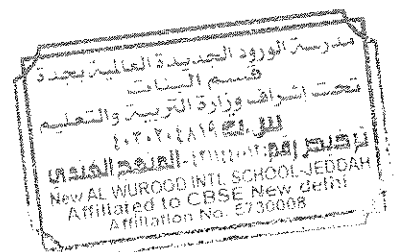 مدرسة الورود الجديدة العالمية بجدة
قسم البنات
تحت اشراف وزارة التربية والتعليم
المنهج الهندي
New AL WUROOD INTL SCHOOL-JEDDAH
Affiliated to CBSE New delhi
Affiliation No. 5730008